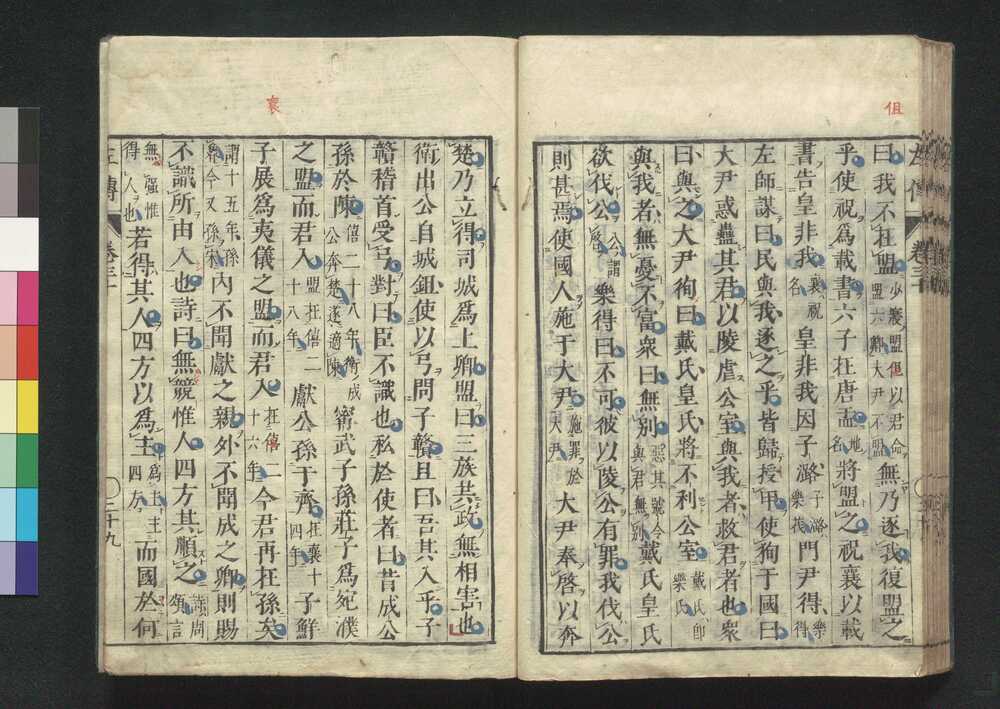 但
曰我不在盟少寢盟但以君命盟六卿大尹不盟無乃逐我復盟之
乎使祝爲載書六子在唐盂地名將盟之祝襄以載
書告皇非我襄祝名皇非我因子潞子潞樂茷門尹得樂得
左師謀曰民與我逐之乎皆歸授甲使徇于國曰
大尹惑蠱其君以陵虐公室與我者救君者也衆
曰與之大尹徇曰戴氏皇氏將不利公室戴氏卽樂氏
與我者無憂不富衆曰無別惡其號令與君無別戴氏皇氏
欲伐公公謂啓樂得曰不可彼以陵公有罪我伐公
則甚焉使國人施于大尹施罪於大尹大尹奉啓以奔
襄
楚乃立得司城爲上卿盟曰三族共政無相害也
衛出公自城鉏使以弓問子贛且曰吾其入乎子
贛稽首受弓對曰臣不識也私於使者曰昔成公
孫於陳僖二十八年衛成公奔楚遂適陳甯武子孫莊子爲宛濮
之盟而君入盟在僖二十八年獻公孫于齊在襄十四年子鮮
子展爲夷儀之盟而君入在僖二十六年今君再在孫矣
謂十五年孫魯今又孫宋內不聞獻之親外不聞成之卿則賜
不識所由入也詩曰無競惟人四方其順之詩周頌言
無强惟得人也若得其人四方以爲主爲主主四方而國於何
左傳 卷三十 二十九